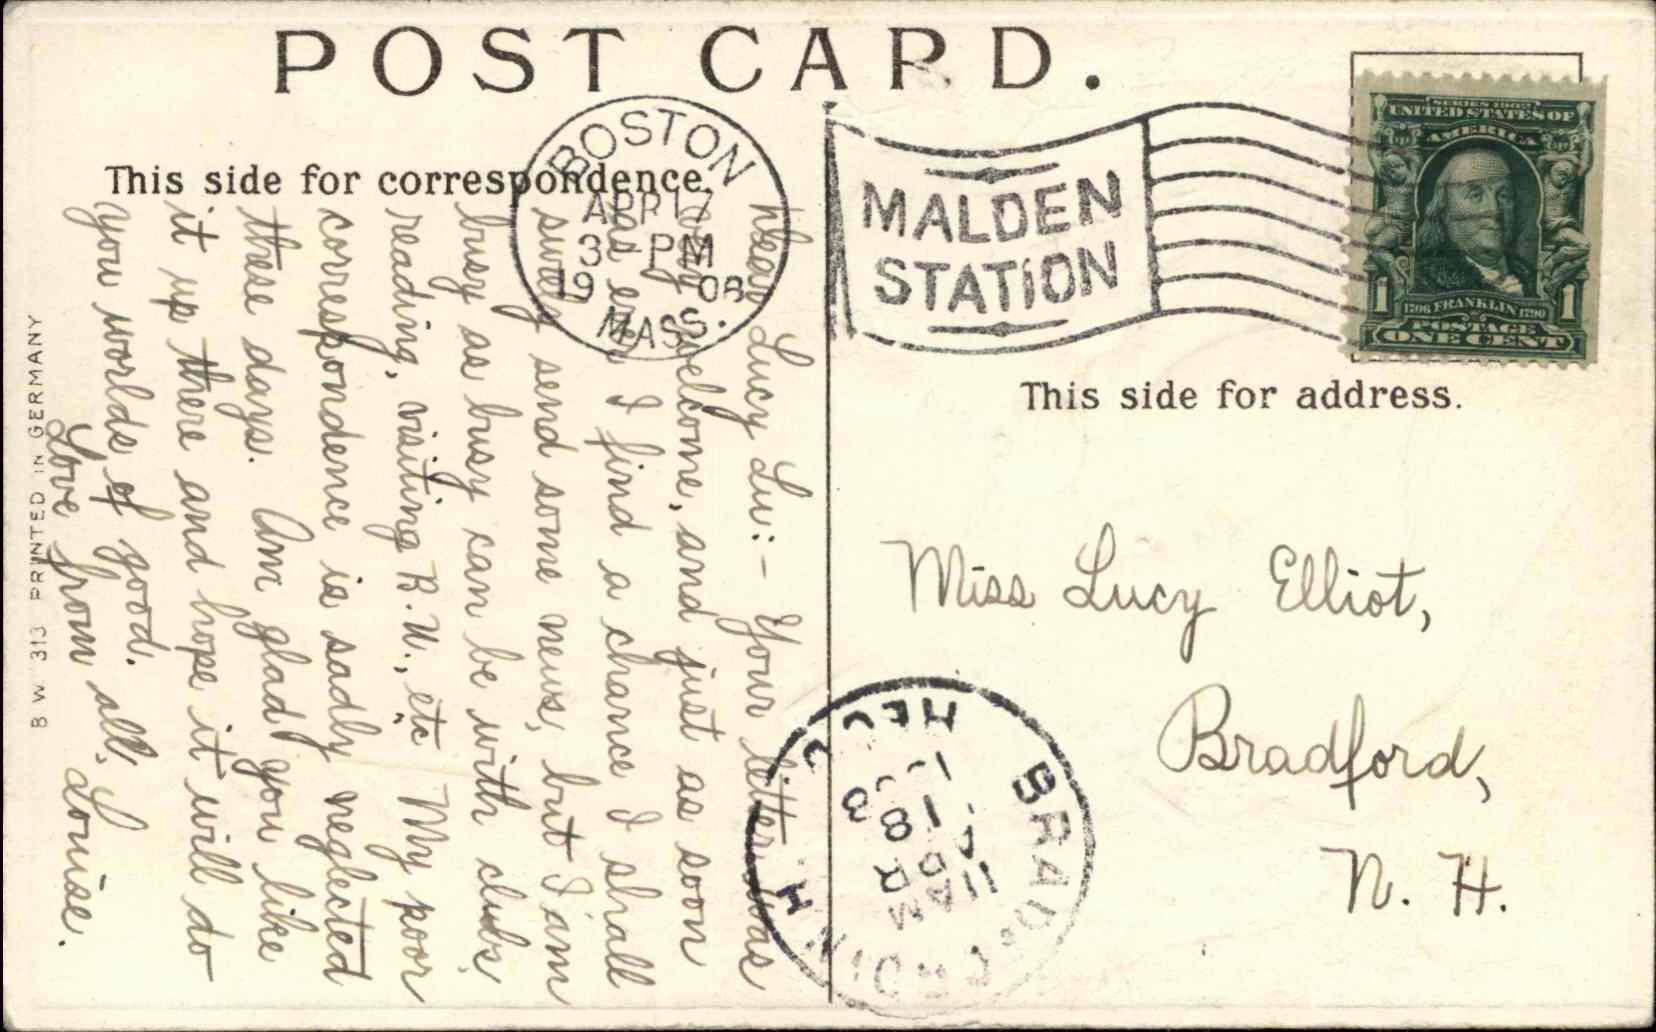 POST CARD.
This side for correspondence.
BOSTON
APR 17
3 - PM
1908
MASS.
MALDEN
STATION
SERIES 1902
UNITED STATES OF
AMERICA
1 1
1706 FRANKLIN 1790
POSTAGE
ONE CENT
This side for address.
Dear Lucy Lu:- Your letter was
very welcome, and just as soon
as ever I find a chance I shall
surely send some news, but I am
busy as busy can be with clubs,
reading, visiting B.U., etc. My poor
correspondence is sadly neglected
these days. Am glad you like
it up there and hope it will do
you worlds of good.
Love from all,
Louise.
Miss Lucy Elliot,
Bradford,
N. H.
BRADFORD
N.H.
11 AM
APR
18
REC'D.
B W 313 PRINTED IN GERMANY